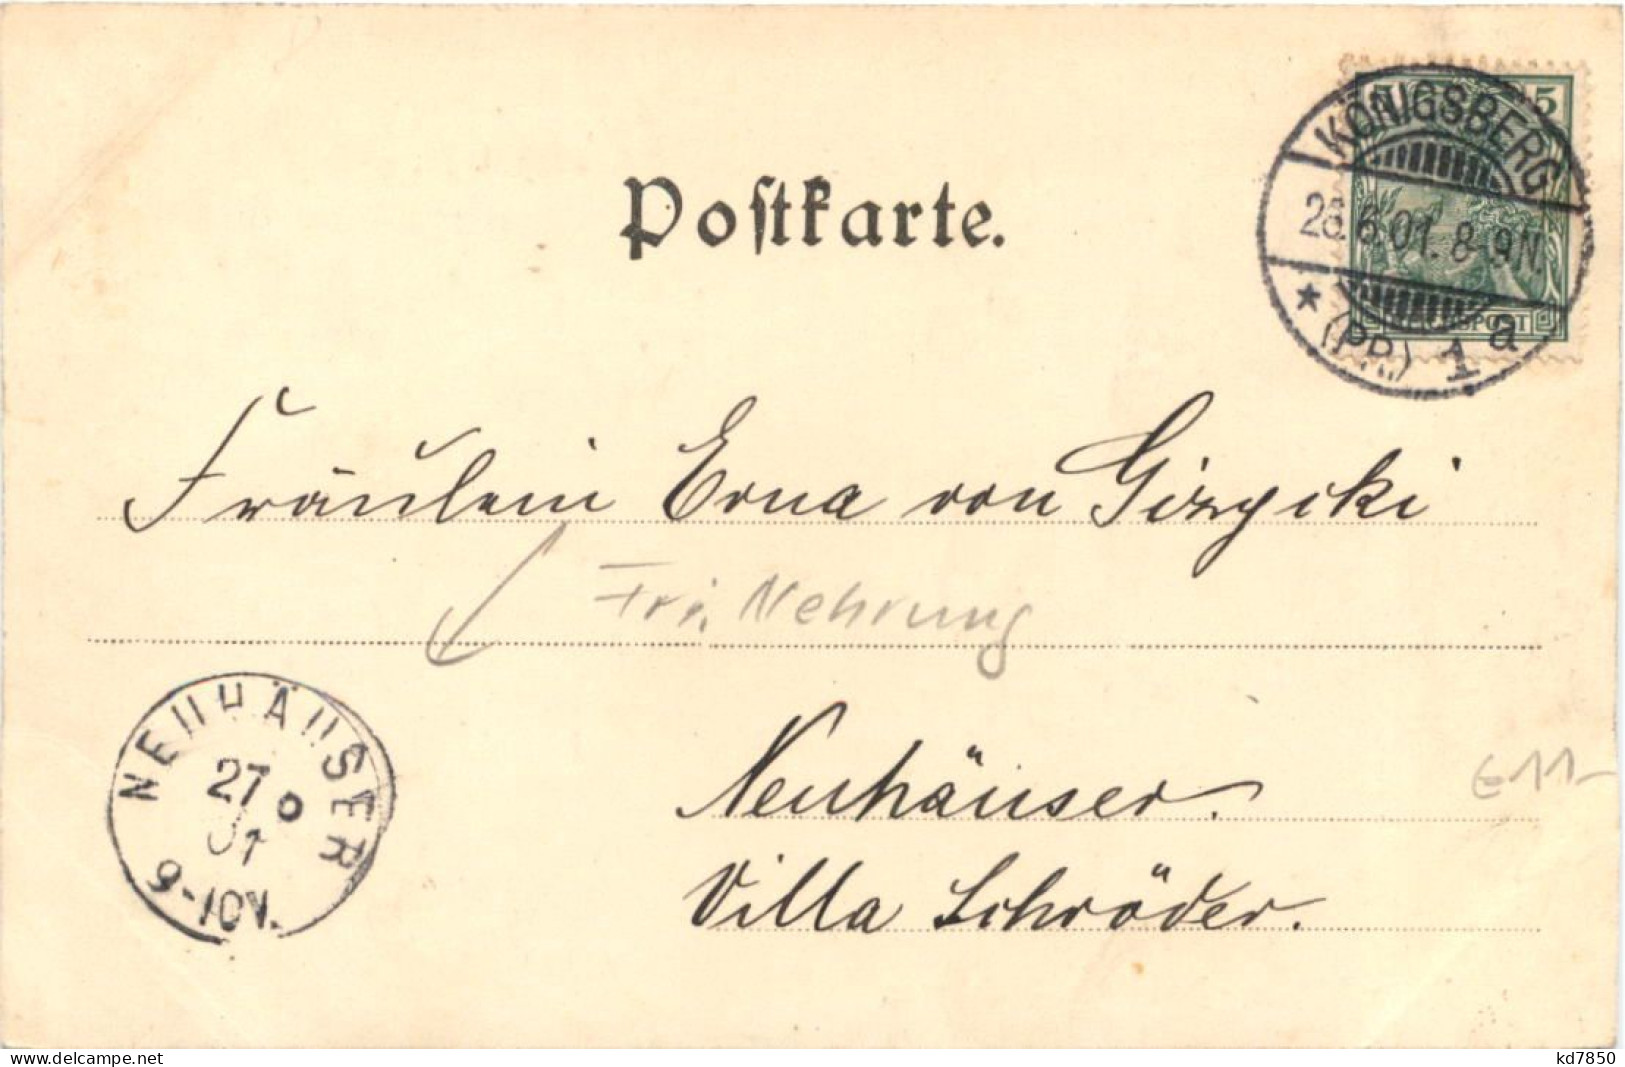 Postkarte.
5
KÖNIGSBERG
6.01. 8-9N.
* (PR.) 1 a
Fräulein Erna von Gizycki
Nehrung
NEUHÄUSER
27
6
01
9-10V.
Neuhäuser.
€ 11-
Villa Schröder.
delcampe.net
kd7850